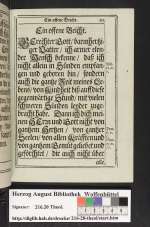 Ein offene Beicht.
Ein offene Beicht.
GErechter Gott, barmhertz-
iger Vatter, ich armer elen-
der Mensch bekenne, daß ich
nicht allein in Sünden empfan-
gen und geboren bin, sondern
auch die gantze Zeit meines Le-
bens, von Kindheit biß auff diese
gegenwärtige Stund, mit vielen
schweren Sünden leyder zuge-
bracht habe. Dann ich dich mei-
nen HErrn und Gott nicht von
gantzem Hertzen, von gantzer
Seelen, von allen Kräfften und
von gantzem Gemüt geliebet und
geförchtet, dir auch nicht über
alle,
Herzog August Bibliothek Wolfenbüttel
Signatur: 216.20 Theol.
http://diglib.hab.de/drucke/216-20-theol/start.htm